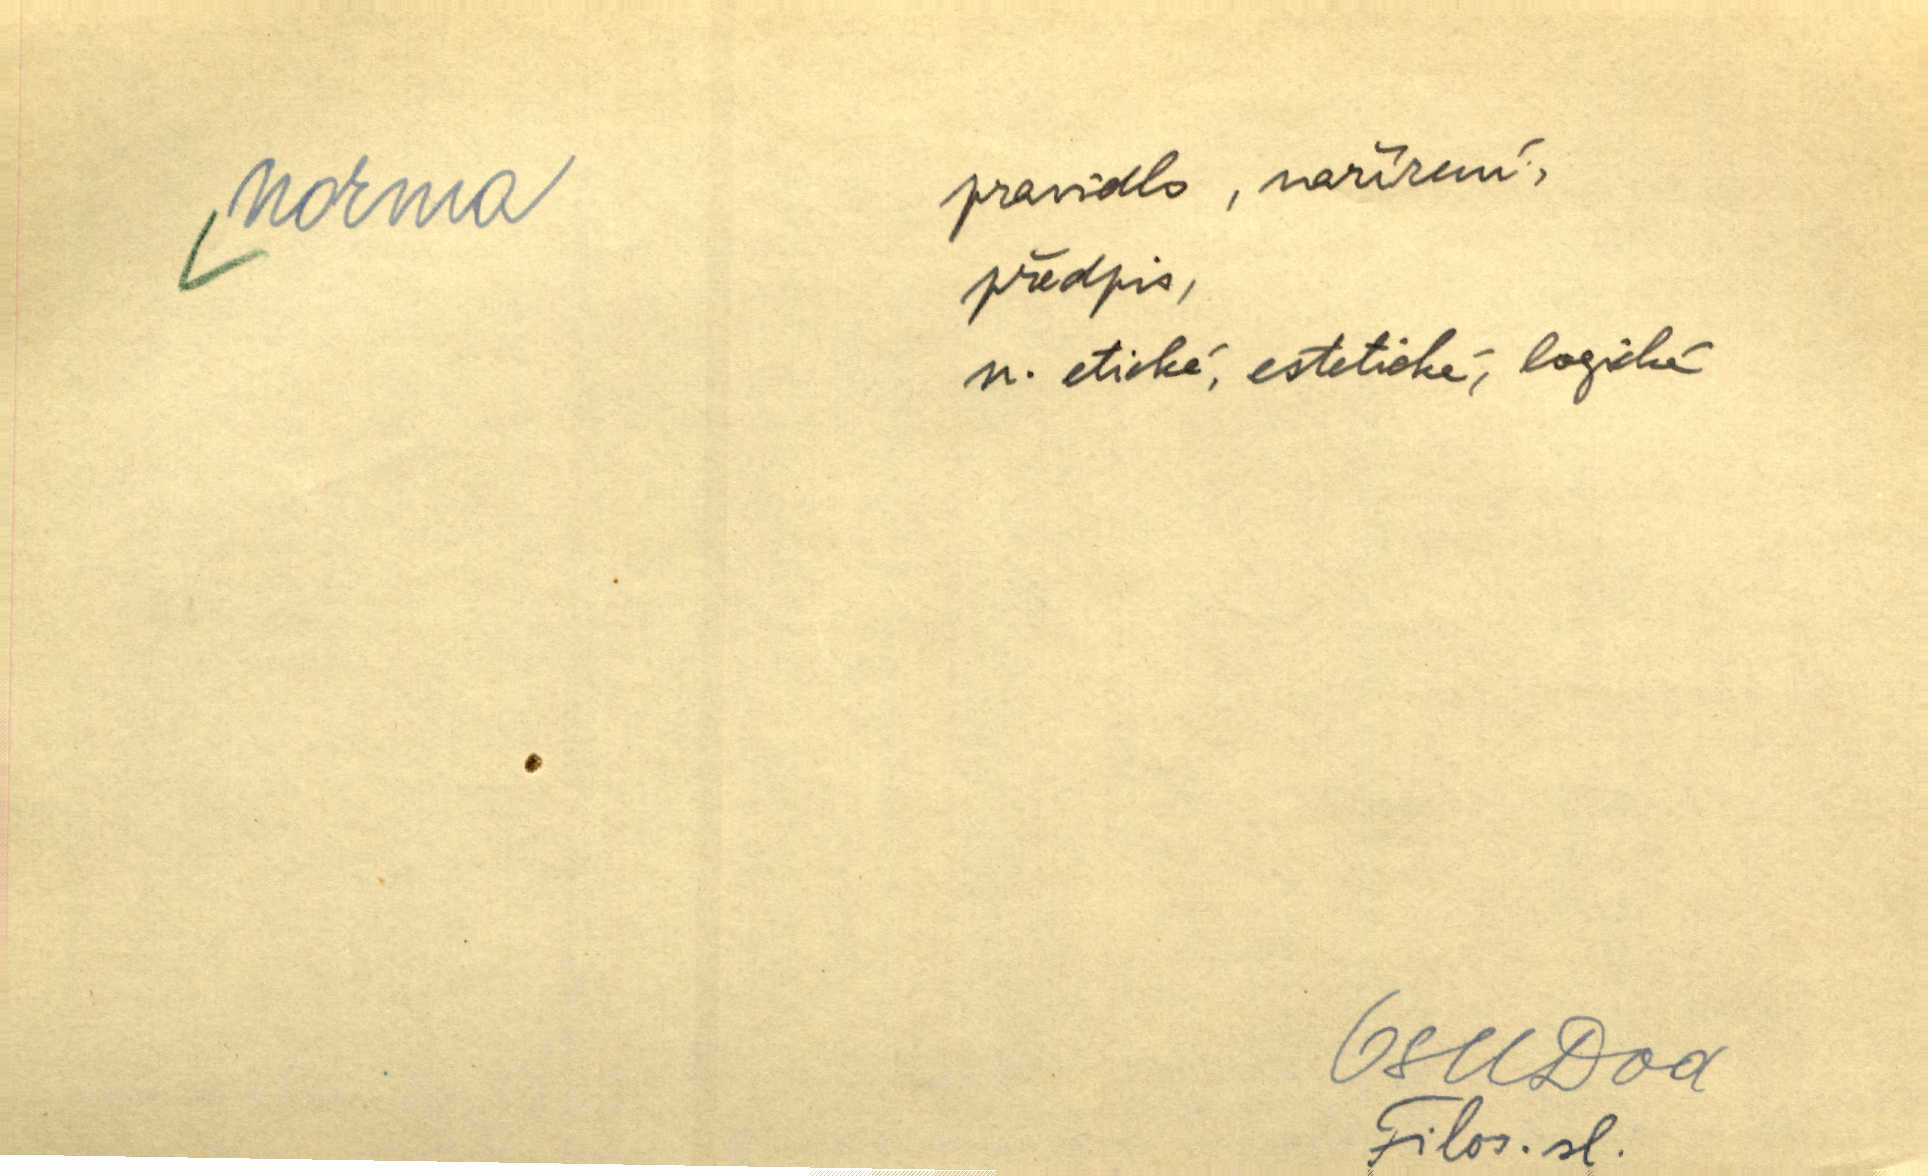 norma
pravidlo, nařízení,
předpis,
n. etické, estetické, logické
Filos. sl.